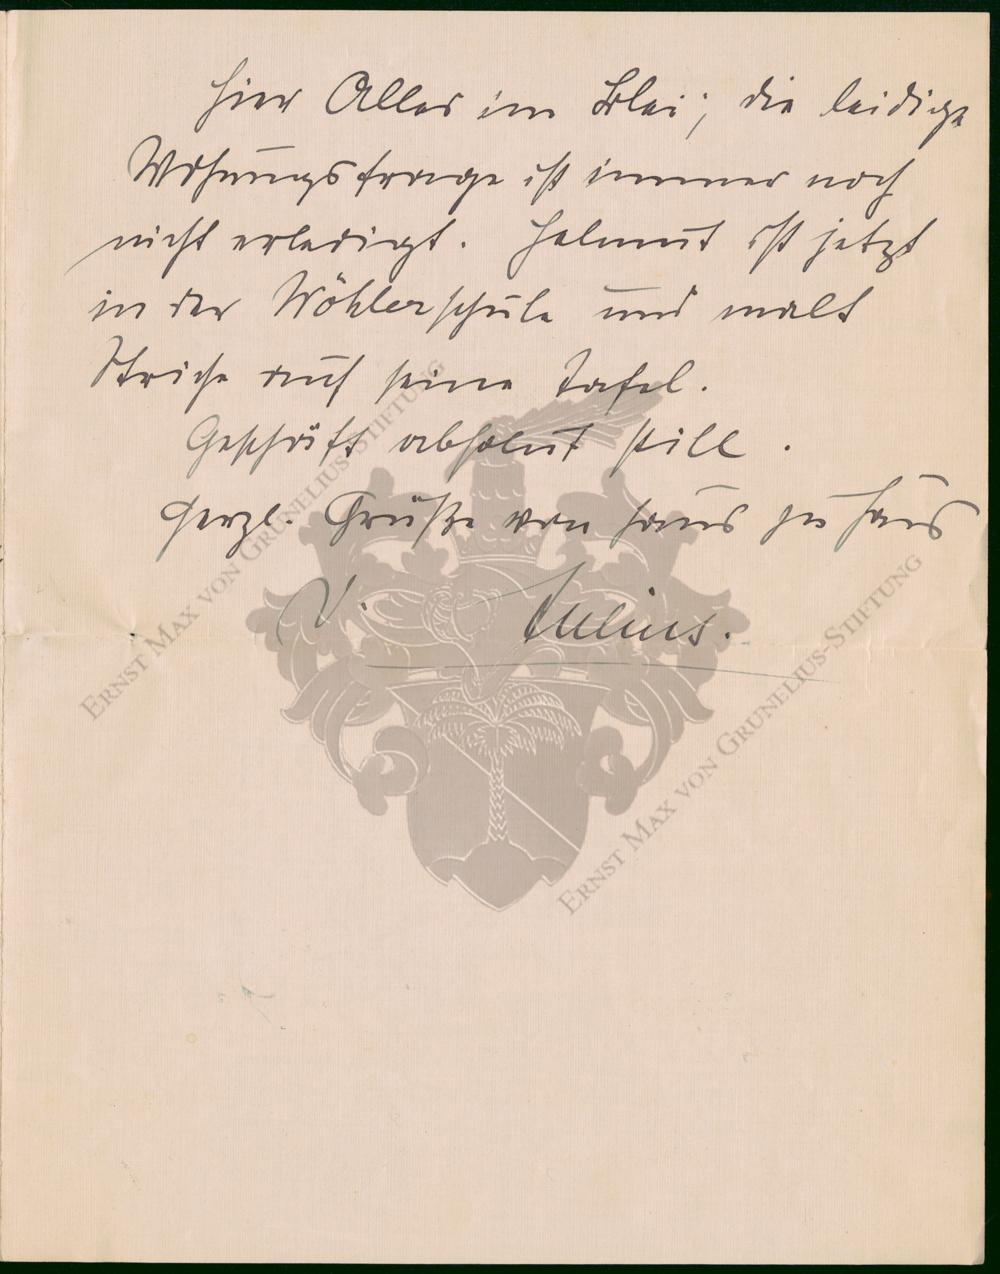 Hier Alles im Blei; die leidige
Wohnungsfrage ist immer noch
nicht erledigt. Helmut ist jetzt
in der Wöhlerschule und malt
Striche auf seine Tafel.
Geschäft absolut still.
Herzl. Grüße von Haus zu Haus
Julius.
ERNST MAX VON GRUNELIUS-STIFTUNG
ERNST MAX VON GRUNELIUS-STIFTUNG